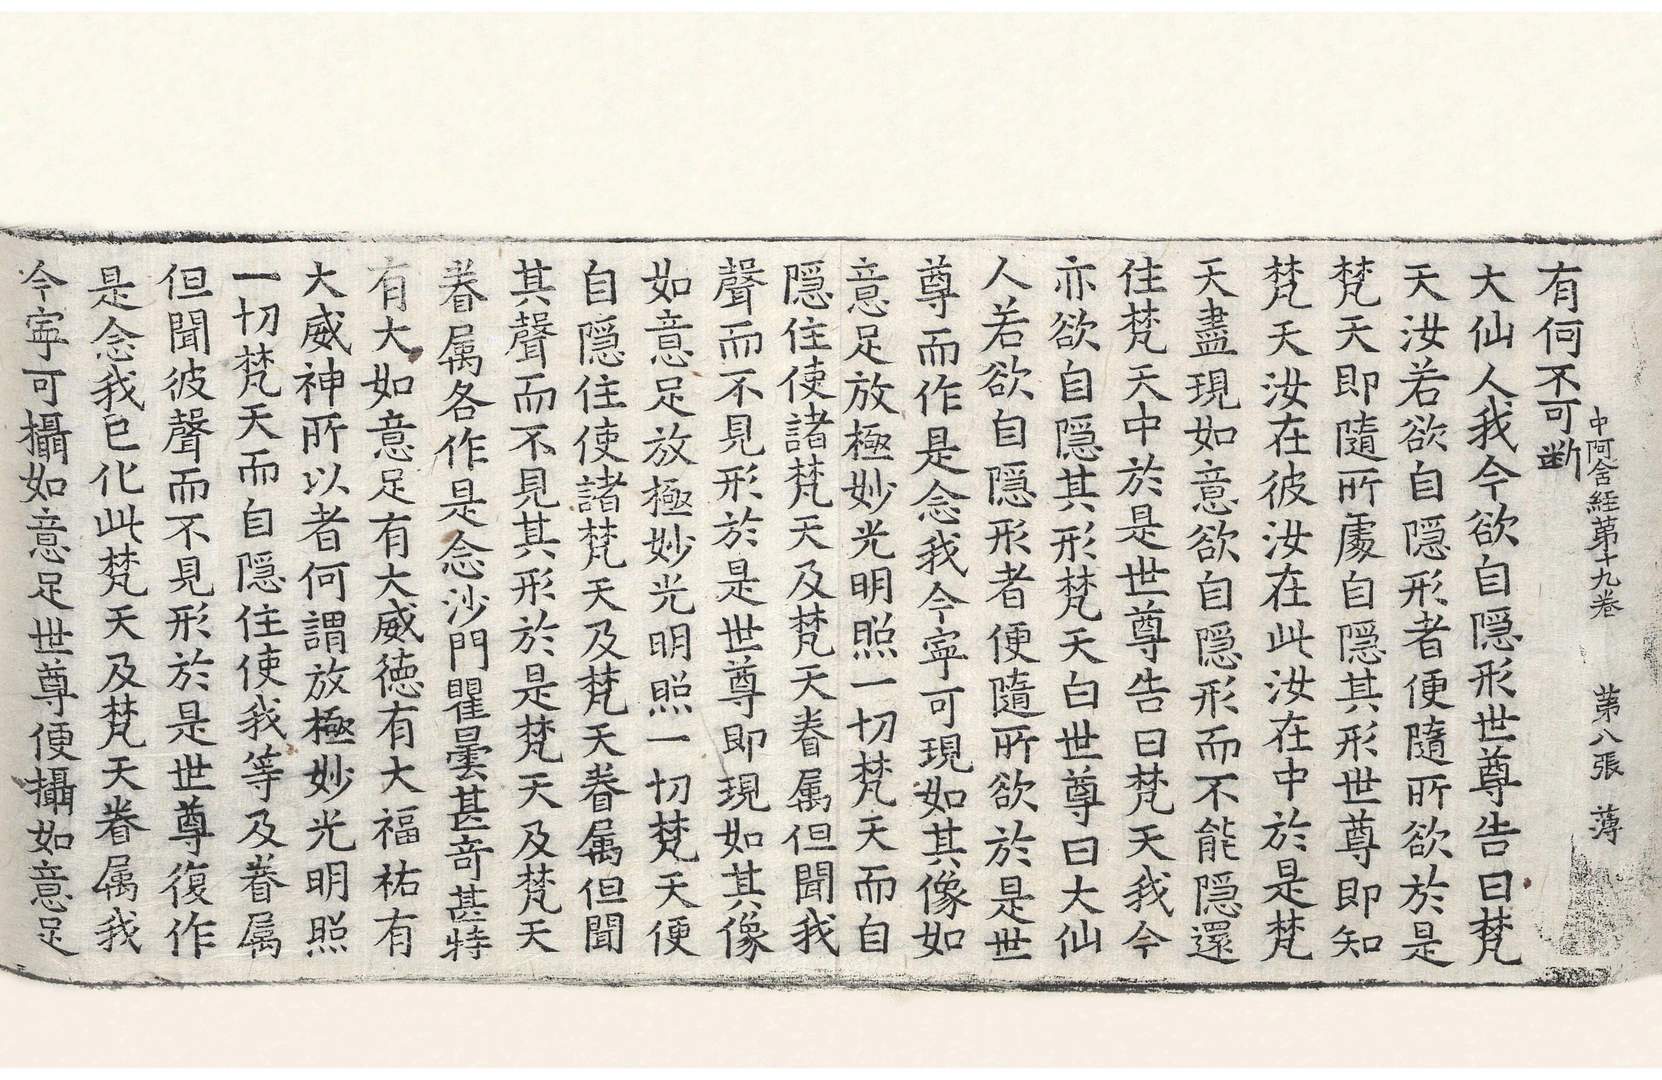 中阿含経苐十九巻 苐八張 薄
有何不可斷
大仙人我今欲自隠形世尊告曰梵
天汝若欲自隠形者便隨所欲於是
梵天即隨所處自隠其形世尊即知
梵天汝在彼汝在此汝在中於是梵
天盡現如意欲自隠形而不能隠還
住梵天中於是世尊告曰梵天我今
亦欲自隠其形梵天白世尊曰大仙
人若欲自隠形者便隨所欲於是世
尊而作是念我今寜可現如其像如
意足放極妙光明照一切梵天而自
隠住使諸梵天及梵天眷属但聞我
聲而不見形於是世尊即現如其像
如意足放極妙光明照一切梵天便
自隠住使諸梵天及梵天眷属但聞
其聲而不見其形於是梵天及梵天
眷属各作是念沙門瞿曇甚竒甚特
有大如意足有大威徳有大福祐有
大威神所以者何謂放極妙光明照
一切梵天而自隠住使我等及眷属
但聞彼聲而不見形於是世尊復作
是念我已化此梵天及梵天眷属我
今寜可攝如意足世尊便攝如意足